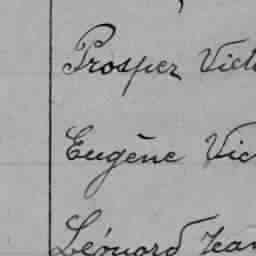 Prosper Vict
Eugène Vic
Léonard Jean